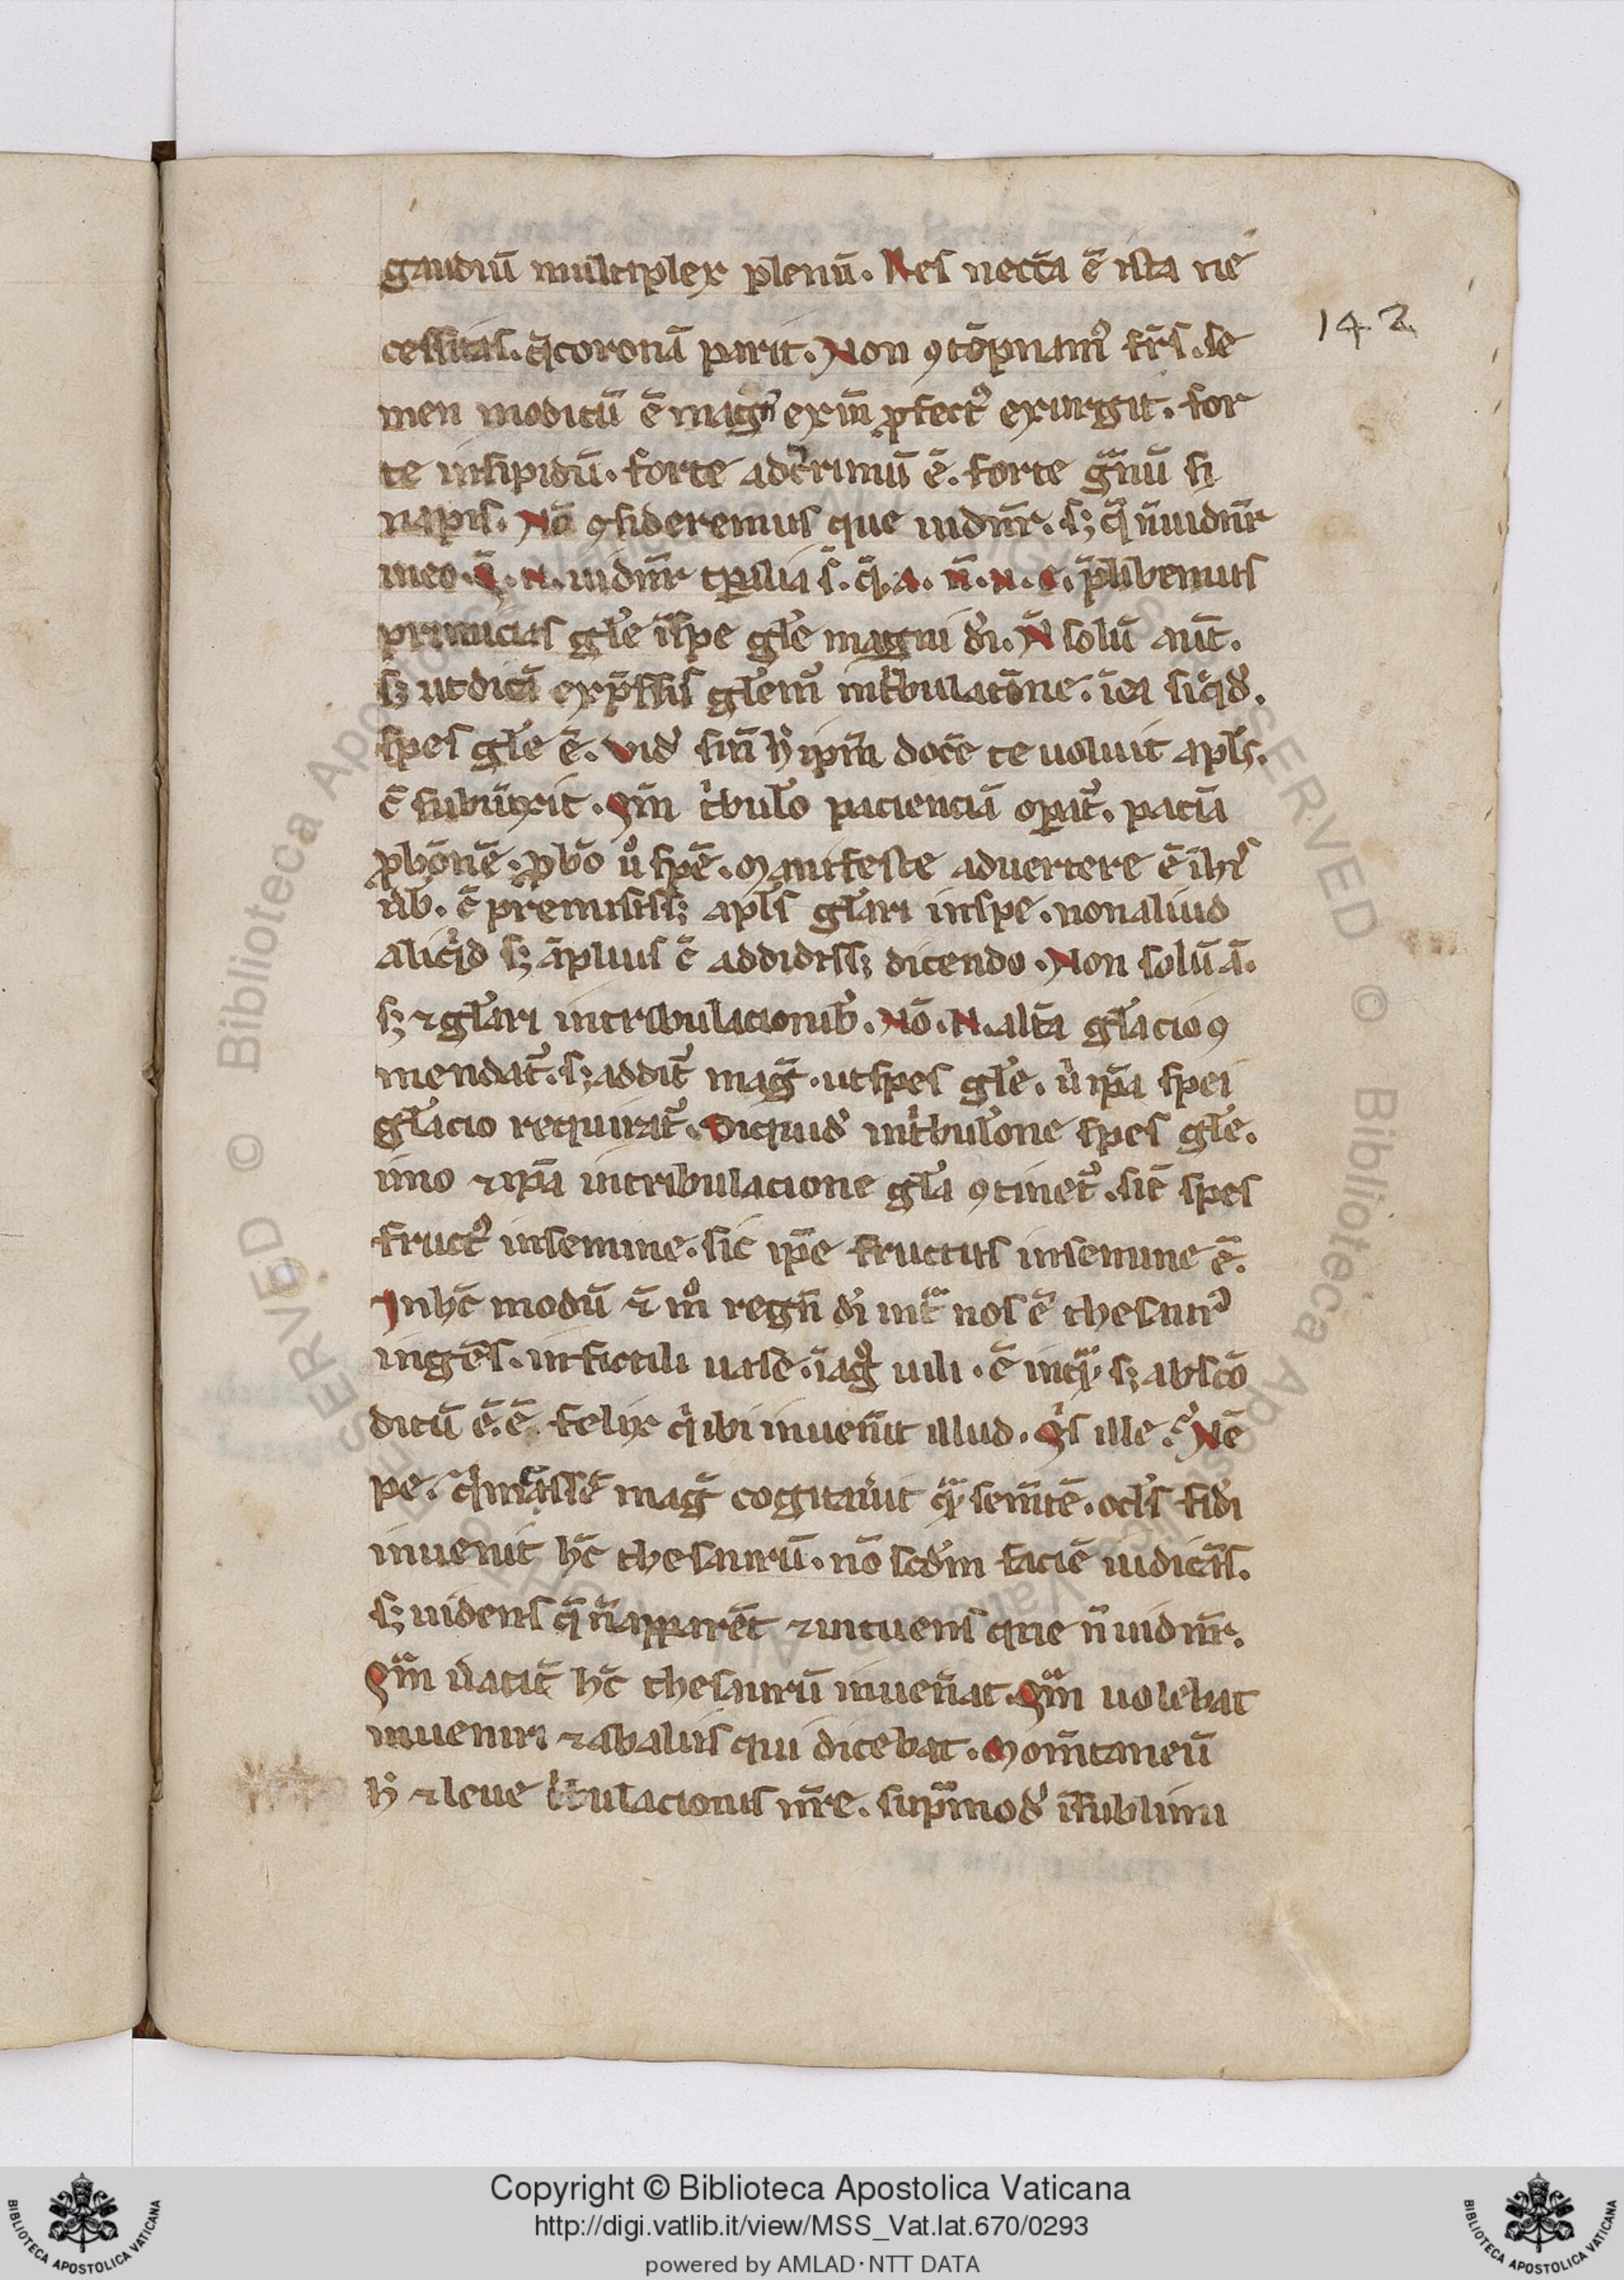 gaudiū multiplex plenū. Res neccā ē ista ne
142
cessitas. q̄ coronā parit. Non ꝯtēpnamꝰ frēs. se
men modicū ē magnꝰ ex in ꝓfectꝰ exurgit. for
te insipidū. forte ad crimū ē. forte gnū si
napis. Nō ꝯsideremus que uidnr̄. sꝫ q̄ n̄ uidnr̄
meo. Q̄. N. uidnr̄ tꝑalia s̄. q̄. A. n̄. N. E. p̄libemus
primicias glē ī spe glē magni di. N̄ solū aut̄.
sꝫ ut dicā exp̄ssiꝰ glēmꝰ in tbulatōne. ī ea siqd.
spes glē ē. Vid sin h ip̄m docē te uoluit apls.
c̄ subiūxit. Qm̄ tbulo pacienciā oꝑat̄. paciā
ꝓbōnē. ꝓbō u̇ spē. Manifeste aduertere ē ī hiꝰ
ūb. c̄ premisissꝫ apls glari in spe. non aliud
aliqd sꝫ āplius c̄ addidissꝫ dicendo. Non solū ā.
sꝫ ⁊ glari in tribulacionib. Nō. N. altā glacio ꝯ
mendat̄. sꝫ addit̄ maḡ. ut spes glē. ū ipā spei
glacio requirat̄. Siquid in tbulone spes glē.
imo ⁊ ipā in tribulacione glā ꝯtinet̄. sic̄ spes
fructꝰ in semine. sic ipē fructus in semine ē.
In hc̄ modū ⁊̄ m̊ regn̄ di int̄ nos ē thesaurꝰ
ingēs. in fictili uase. ī agꝰ uili. ē inq̄. sꝫ abscō
ditū ē. ē. felix q ibi inuen̄it illud. Qs ille? Nē
pe. q in cassē maḡ cogitauit q̄ sem̄tē. ocls fidi
inuenit hc̄ thesaurū. nō scdm faciē iudicās.
sꝫ uidens q̄ n̄ apparēt ⁊ intuens que n̄ uidnr̄.
Qm̄ ūacit̄ hc̄ thesaurū inuen̄at. Qm̄ uolebat
inueniri ⁊ ab aliis qui dicebat. Mom̄taneū
h ⁊ leue tbulacionis nr̄e. sup̄mod ī sublimi
Copyright © Biblioteca Apostolica Vaticana
http://digi.vatlib.it/view/MSS_Vat.lat.670/0293
powered by AMLAD·NTT DATA